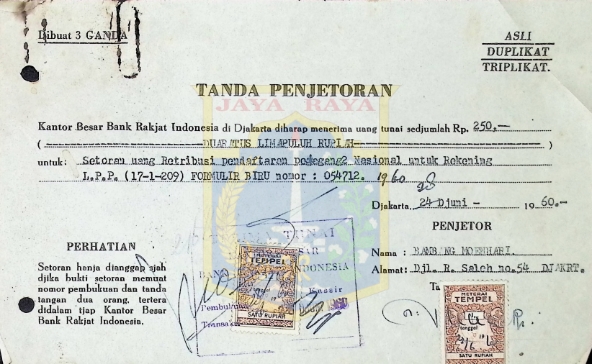 Dibuat 3 GANDA
ASLI
DUPLIKAT
TRIPLIKAT.
TANDA PENJETORAN
JAYA RAYA
Kantor Besar Bank Rakjat Indonesia di Djakarta diharap menerima uang tunai sedjumlah Rp. 250,-
( DUARATUS LIMAPULUH RUPIAH )
untuk: Setoran uang Retribusi pendaftaran pedagang2 Nasional untuk Rekening
L.P.P. (17-1-209) FORMULIR BIRU nomor : 054712. 1960
Djakarta, 24 Djuni - 1960.-
PENJETOR
PERHATIAN
Setoran hanja dianggap sjah
djika bukti setoran memuat
nomor pembukuan dan tanda
tangan dua orang, tertera
didalam tjap Kantor Besar
Bank Rakjat Indonesia.
TUNAI
INDONESIA
Kassir
Pembukuan
Nama : BAMBANG MOERHARI.
Alamat: Djl. R. Saleh no.54 DJAKRT.
METERAI
TEMPEL
SATU RUPIAH
METERAI
TEMPEL
tanggal
SATU RUPIAH
Rp.